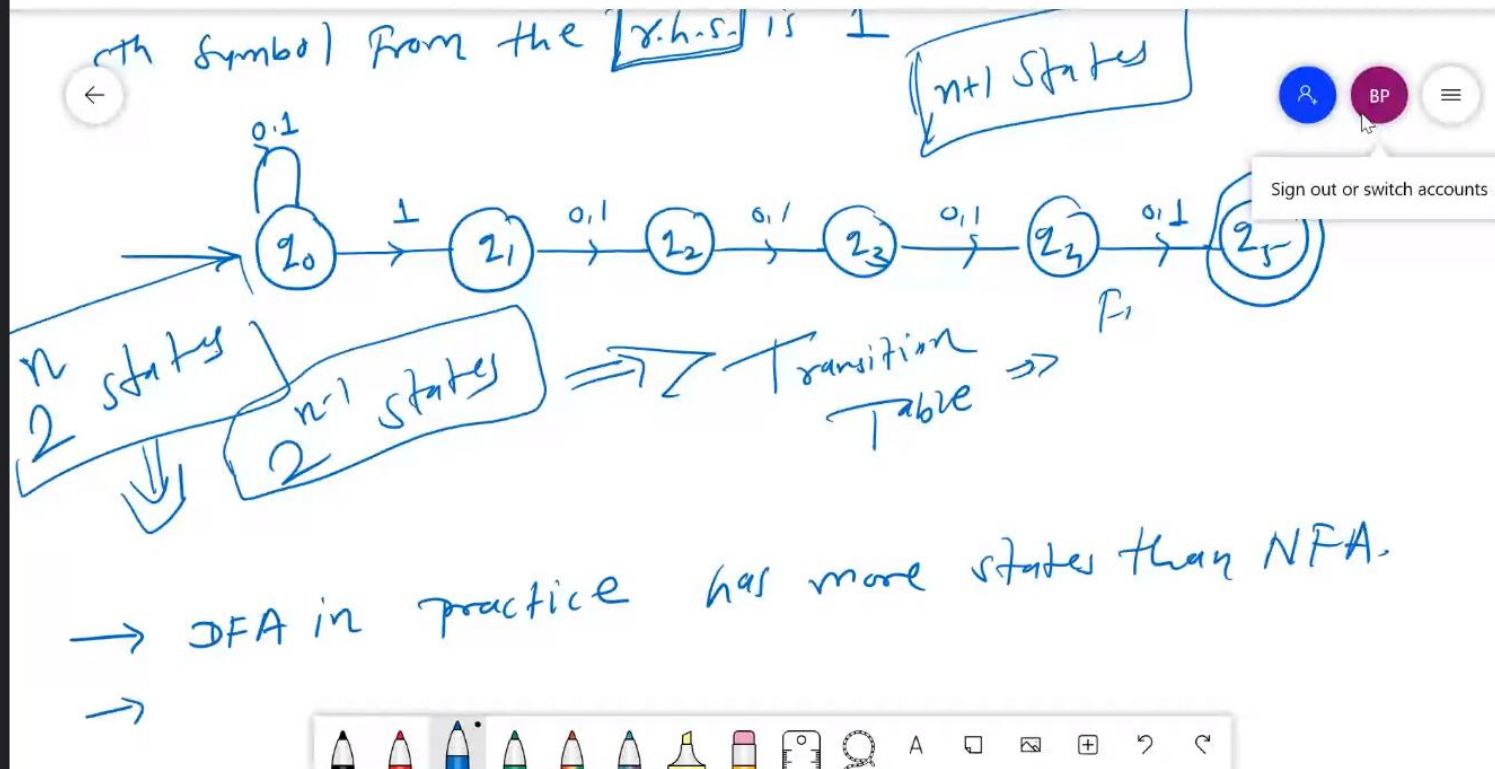 5th Symbol From the r.h.s. is 1
n+1 States
BP
Sign out or switch accounts
0,1
1 0,1 0,1 0,1 0,1
q0 q1 q2 q3 q4 q5
F,
2^n states
2^n-1 states ⇒ Transition Table ⇒
→ DFA in practice has more states than NFA.
→
A